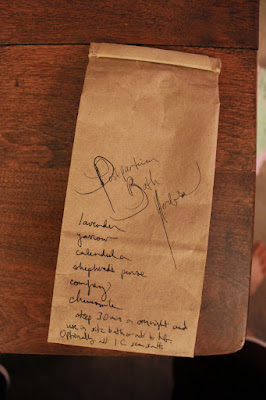 Postpartum
Bath
herbs
lavender
yarrow
calendula
shepherds purse
comfrey
chamomile
steep 30 min or overnight and
use in sitz bath or add to tub.
Optionally add 1 C sea salt